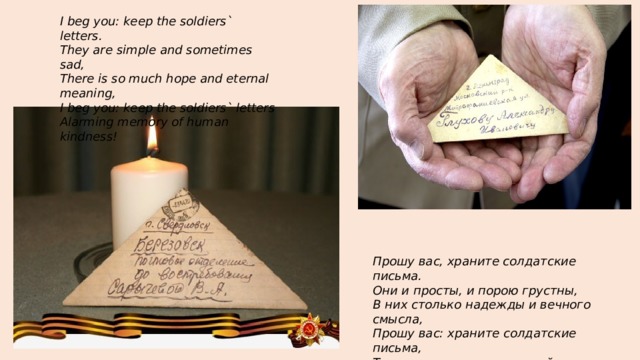 I beg you: keep the soldiers`
letters.
They are simple and sometimes
sad,
There is so much hope and eternal
meaning,
I beg you: keep the soldiers` letters
Alarming memory of human
kindness!
г. Ленинград
Московский р-н
Глухову Александру
Ивановичу
г. Свердловск
Березовск
почтовое отделение
до востребования
Сарычевой В.Я.
Прошу вас, храните солдатские
письма.
Они и просты, и порою грустны,
В них столько надежды и вечного
смысла,
Прошу вас: храните солдатские
письма,